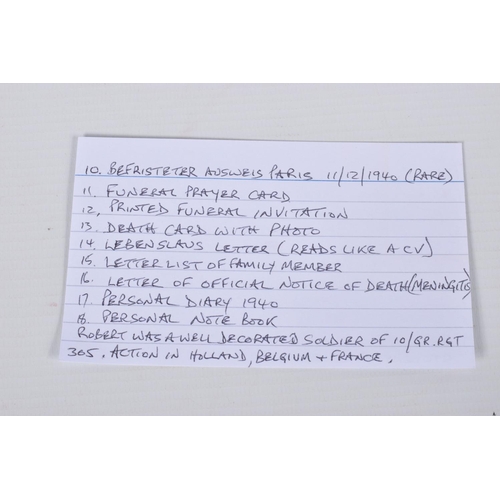 10. BEFRISTETER AUSWEIS PARIS 11/12/1940 (RARE)
11. FUNERAL PRAYER CARD
12, PRINTED FUNERAL INVITATION
13. DEATH CARD WITH PHOTO
14. LEBENSLAUS LETTER (READS LIKE A CV)
15. LETTER LIST OF FAMILY MEMBER
16. LETTER OF OFFICIAL NOTICE OF DEATH (MENINGITIS)
17. PERSONAL DIARY 1940
18. PERSONAL NOTE BOOK
ROBERT WAS A WELL DECORATED SOLDIER OF 10/GR.RGT
305. ACTION IN HOLLAND, BELGIUM + FRANCE.